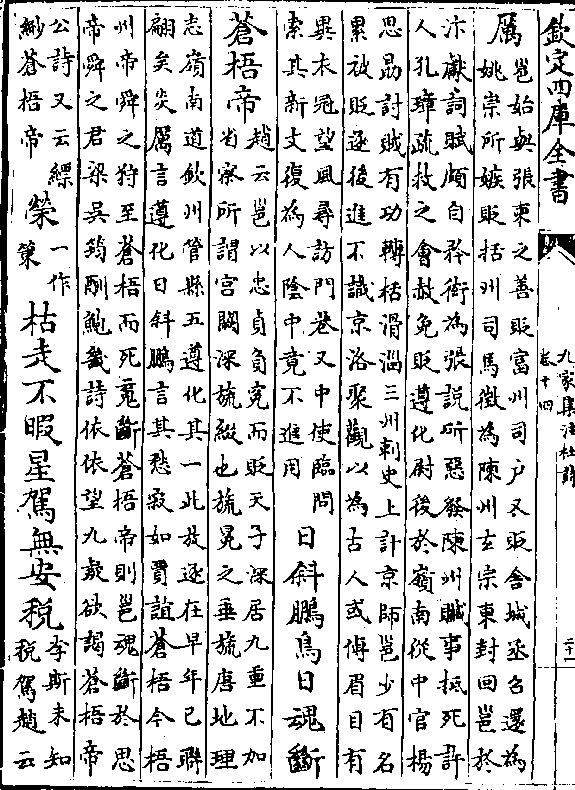 欽定四庫全書
九家集注杜詩
卷十四
二十一
厲
邕始與張柬之善貶富州司户又貶舍城丞召還為
姚崇所嫉貶括州司馬徵為陳州玄宗東封回邕於
汴獻詞賦頗自矜衒為張説所惡發陳州贓事抵死許
人孔璋疏救之會赦免貶遵化尉後於嶺南從中官楊
思勗討賊有功轉括滑淄三州刺史上計京師邕少有名
累被貶逐後進不識京洛聚觀以為古人或傳眉目有
異衣冠望風尋訪門巷又中使臨問
索其新文復為人陰中竟不進用
日斜鵩鳥日魂斷
蒼梧帝
趙云邕以忠貞負寃而貶天子深居九重不加
省察所謂宫闕深旒綴也旒冕之垂旒唐地理
志嶺南道欽州管縣五遵化其一此放逐在早年已聯
翩矣炎厲言遵化日斜鵩言其愁寂如賈誼蒼梧今梧
州帝舜之狩至蒼梧而死䰟斷蒼梧帝則邕魂斷於思
帝舜之君梁吳筠酬鮑幾詩依依望九嶷欲謁蒼梧帝
公詩又云縹
緲蒼梧帝
榮
一作
策
枯走不暇星駕無安税
李斯未知
税駕趙云